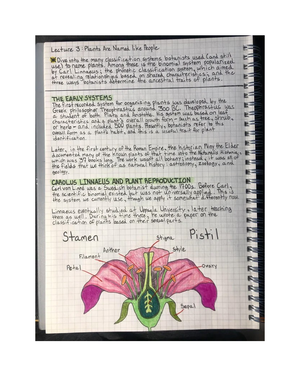 Lecture 3: Plants Are Named like People
Dive into the many classification systems botanists used (and still
use) to name plants. Among these is the binomial system popularized
by Carl Linnaeus; the phenetic classification system, which aimed
at revealing relationships based on shared characteristics; and the
three ways botanists determine the ancestral traits of plants.
THE EARLY SYSTEMS
The first recorded system for organizing plants was developed by the
Greek philosopher Theophrastus around 300 BC. Theophrastus was
a student of both Plato and Aristotle. His system was based on
characteristics and a plant's overall growth form - such as tree, shrub,
or herb and included 500 plants. Nowadays, botanists refer to this
growth form as a plant's habit, and this is a useful trait for plant
identification.
Later, in the first century of the Roman Empire, the historian Pliny the Elder
documented many of the known plants of that time into the Naturalis Historia,
which was 37 books long. The work wasn't all botany; instead, it was all of
the fields that we think of as natural history: astronomy, zoology, and
geology.
CAROLUS LINNAEUS AND PLANT REPRODUCTION
Carl von Linné was a Swedish botanist during the 1700s. Before Carl,
the scientific binomial existed but was not universally applied. This is
the system we currently use, though we apply it somewhat differently now.
Linnaeus eventually studied at Uppsala University, later teaching
there as well. During his time there, he wrote a paper on the
classification of plants based on their sexual parts.
Stamen
Stigma
Pistil
Anther
Style
Filament
Petal
Ovary
Sepal